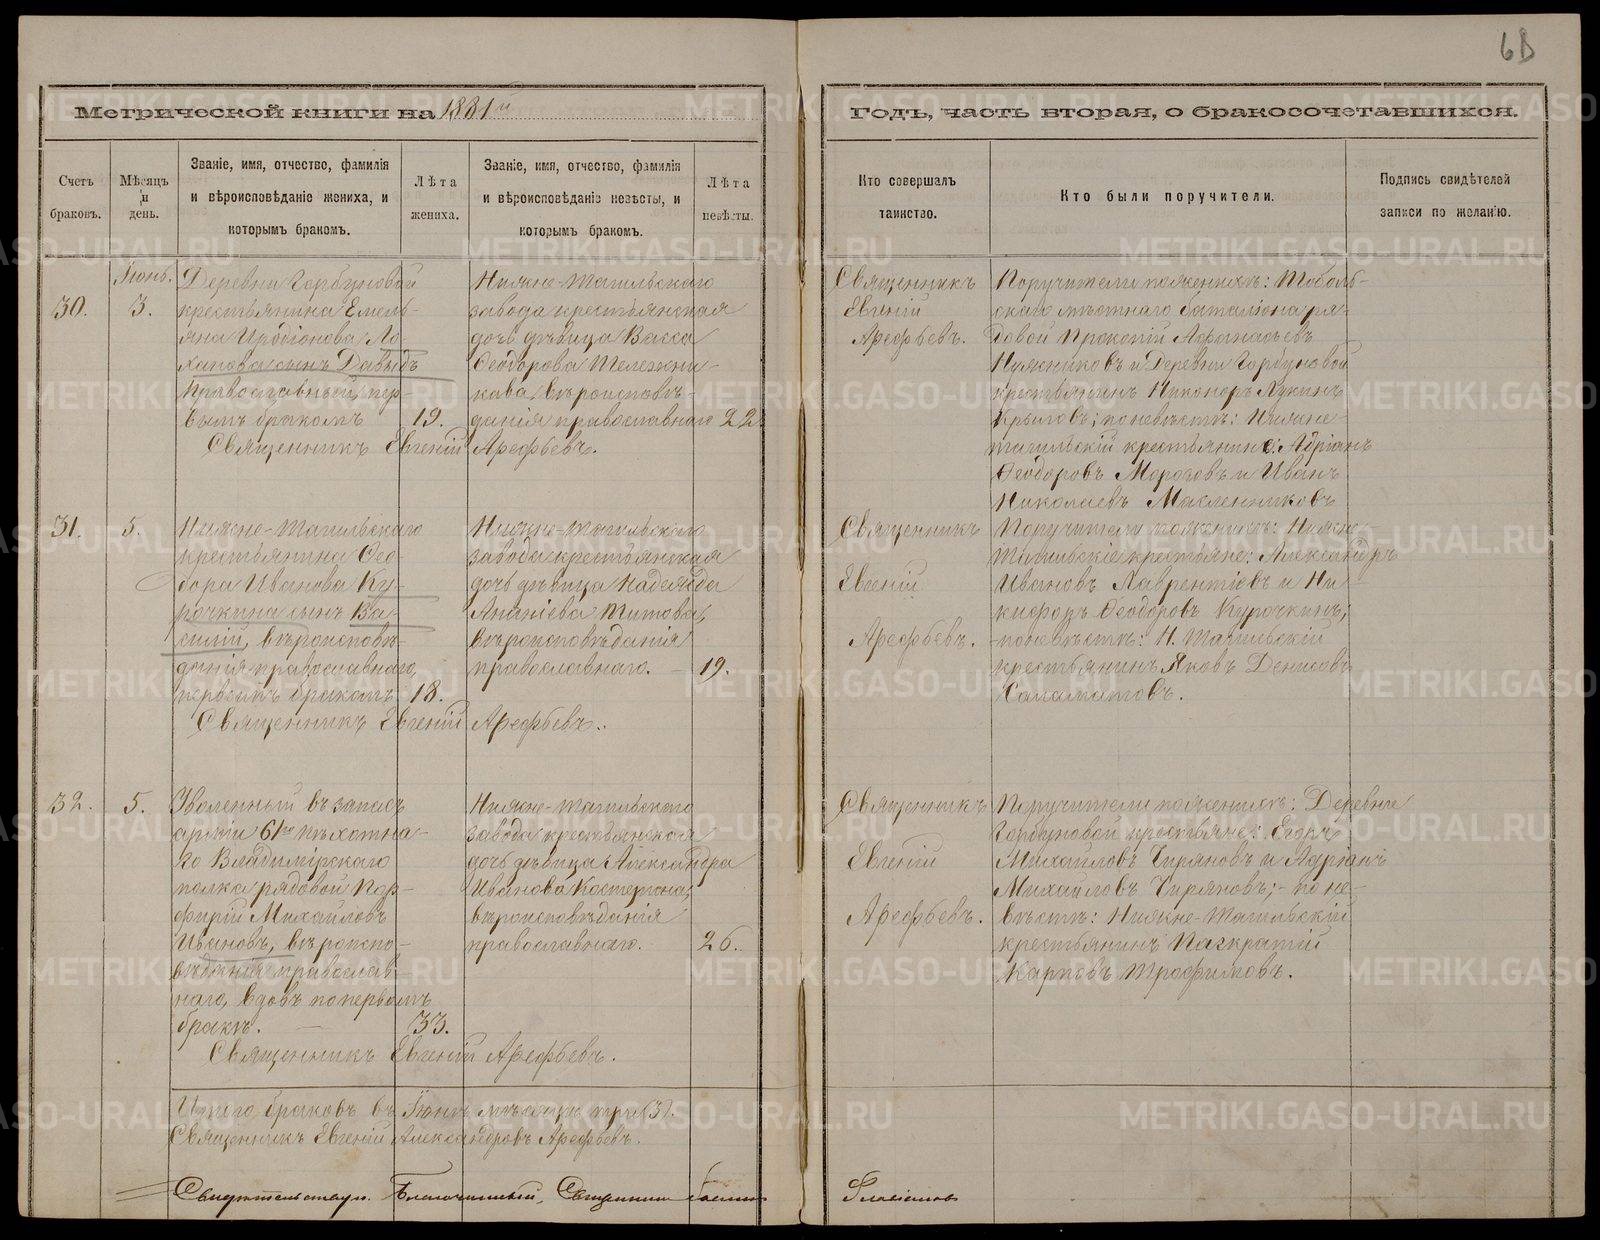 6В
Метрической книги на 1881й
годъ, часть вторая, о бракосочетавшихся.
Счетъ браковъ.
Мѣсяцъ и день.
Званіе, имя, отчество, фамилія
и вѣроисповѣданіе жениха, и
которымъ бракомъ.
Лѣта
жениха.
Званіе, имя, отчество, фамилія
и вѣроисповѣданіе невѣсты, и
которымъ бракомъ.
Лѣта
невѣсты.
Кто совершалъ
таинство.
Кто были поручители.
Подпись свидѣтелей
записи по желанію.
30.
Іюнь.
3.
Деревни Горбуновой
крестьянина Емель-
яна Иродіонова Ло
ханова сынъ Давыдъ
Православный, пер-
вымъ бракомъ
19.
Нижне-Тагильскаго
завода крестьянская
дочь дѣвица Васса
Ѳеодорова Тележни-
кова вѣроисповѣ-
данія православнаго
22.
Священникъ Евгеній Арефьевъ.
Священникъ
Евгеній
Арефьевъ.
Поручители по женихѣ: Тоболь-
скаго мѣстнаго баталіона ря-
довой Прокопій Афанасьевъ
и Деревни Горбуновой
крестьянинъ Никоноръ Лукинъ
Крыловъ; по невѣстѣ: Нижне-
тагильскій крестьянинъ: Адріанъ
Ѳеодоровъ Морозовъ и Иванъ
Николаевъ Масленниковъ
31.
5.
Нижне-Тагильскаго
крестьянина Ѳео-
дора Иванова Ку-
рочкина сынъ Ва-
силій, вѣроисповѣ-
данія православнаго,
первымъ бракомъ
18.
Нижне-Тагильскаго
завода крестьянская
дочь дѣвица Надежда
Ананіева Титова,
вѣроисповѣданія
православнаго.
19.
Священникъ Евгеній Арефьевъ.
Священникъ
Евгеній
Арефьевъ.
Поручители по женихѣ: Нижне-
Тагильскіе крестьяне: Александръ
Ивановъ Лаврентіевъ и Ни
кифоръ Ѳеодоровъ Курочкинъ;
по невѣстѣ: Н. Тагильскій
крестьянинъ Яковъ Денисовъ
Саламатовъ.
32.
5.
Уволенный въ запасъ
арміи 61го пѣхотна-
го Владимірскаго
полка рядовой Пор-
фирій Михайловъ
Ивановъ, вѣроиспо-
вѣданія православ-
наго, вдовъ по первомъ
бракѣ.
33.
Нижне-Тагильскаго
завода крестьянская
дочь дѣвица Александра
Иванова Костерина,
вѣроисповѣданія
православнаго.
26.
Священникъ Евгеній Арефьевъ.
Священникъ
Евгеній
Арефьевъ.
Поручители по женихѣ: Деревни
Горбуновой крестьяне: Егоръ
Михайловъ Чиряновъ и Адріанъ
Михайловъ Чиряновъ; - по не-
вѣстѣ: Нижне-Тагильскій
крестьянинъ Панкратій
Карповъ Трофимовъ.
Итого браковъ въ Іюнѣ мѣсяцѣ три (3).
Священникъ Евгеній Александровъ Арефьевъ.
Свидѣтельствую. Благочинный, Священникъ
METRIKI.GASO-URAL.RU